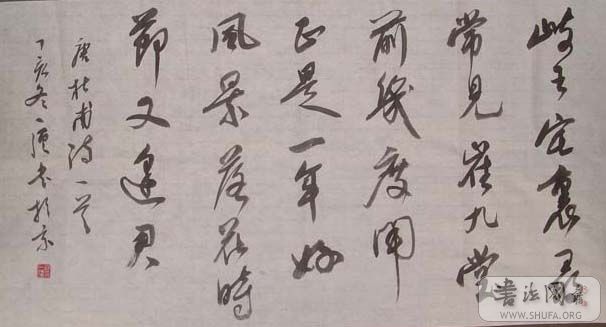 岐王宅裏尋
常見崔九堂
前幾度聞
正是一年好
風景落花時
節又逢君
唐杜甫詩一首
丁亥冬書於京
書法
WWW.SHUFA.ORG